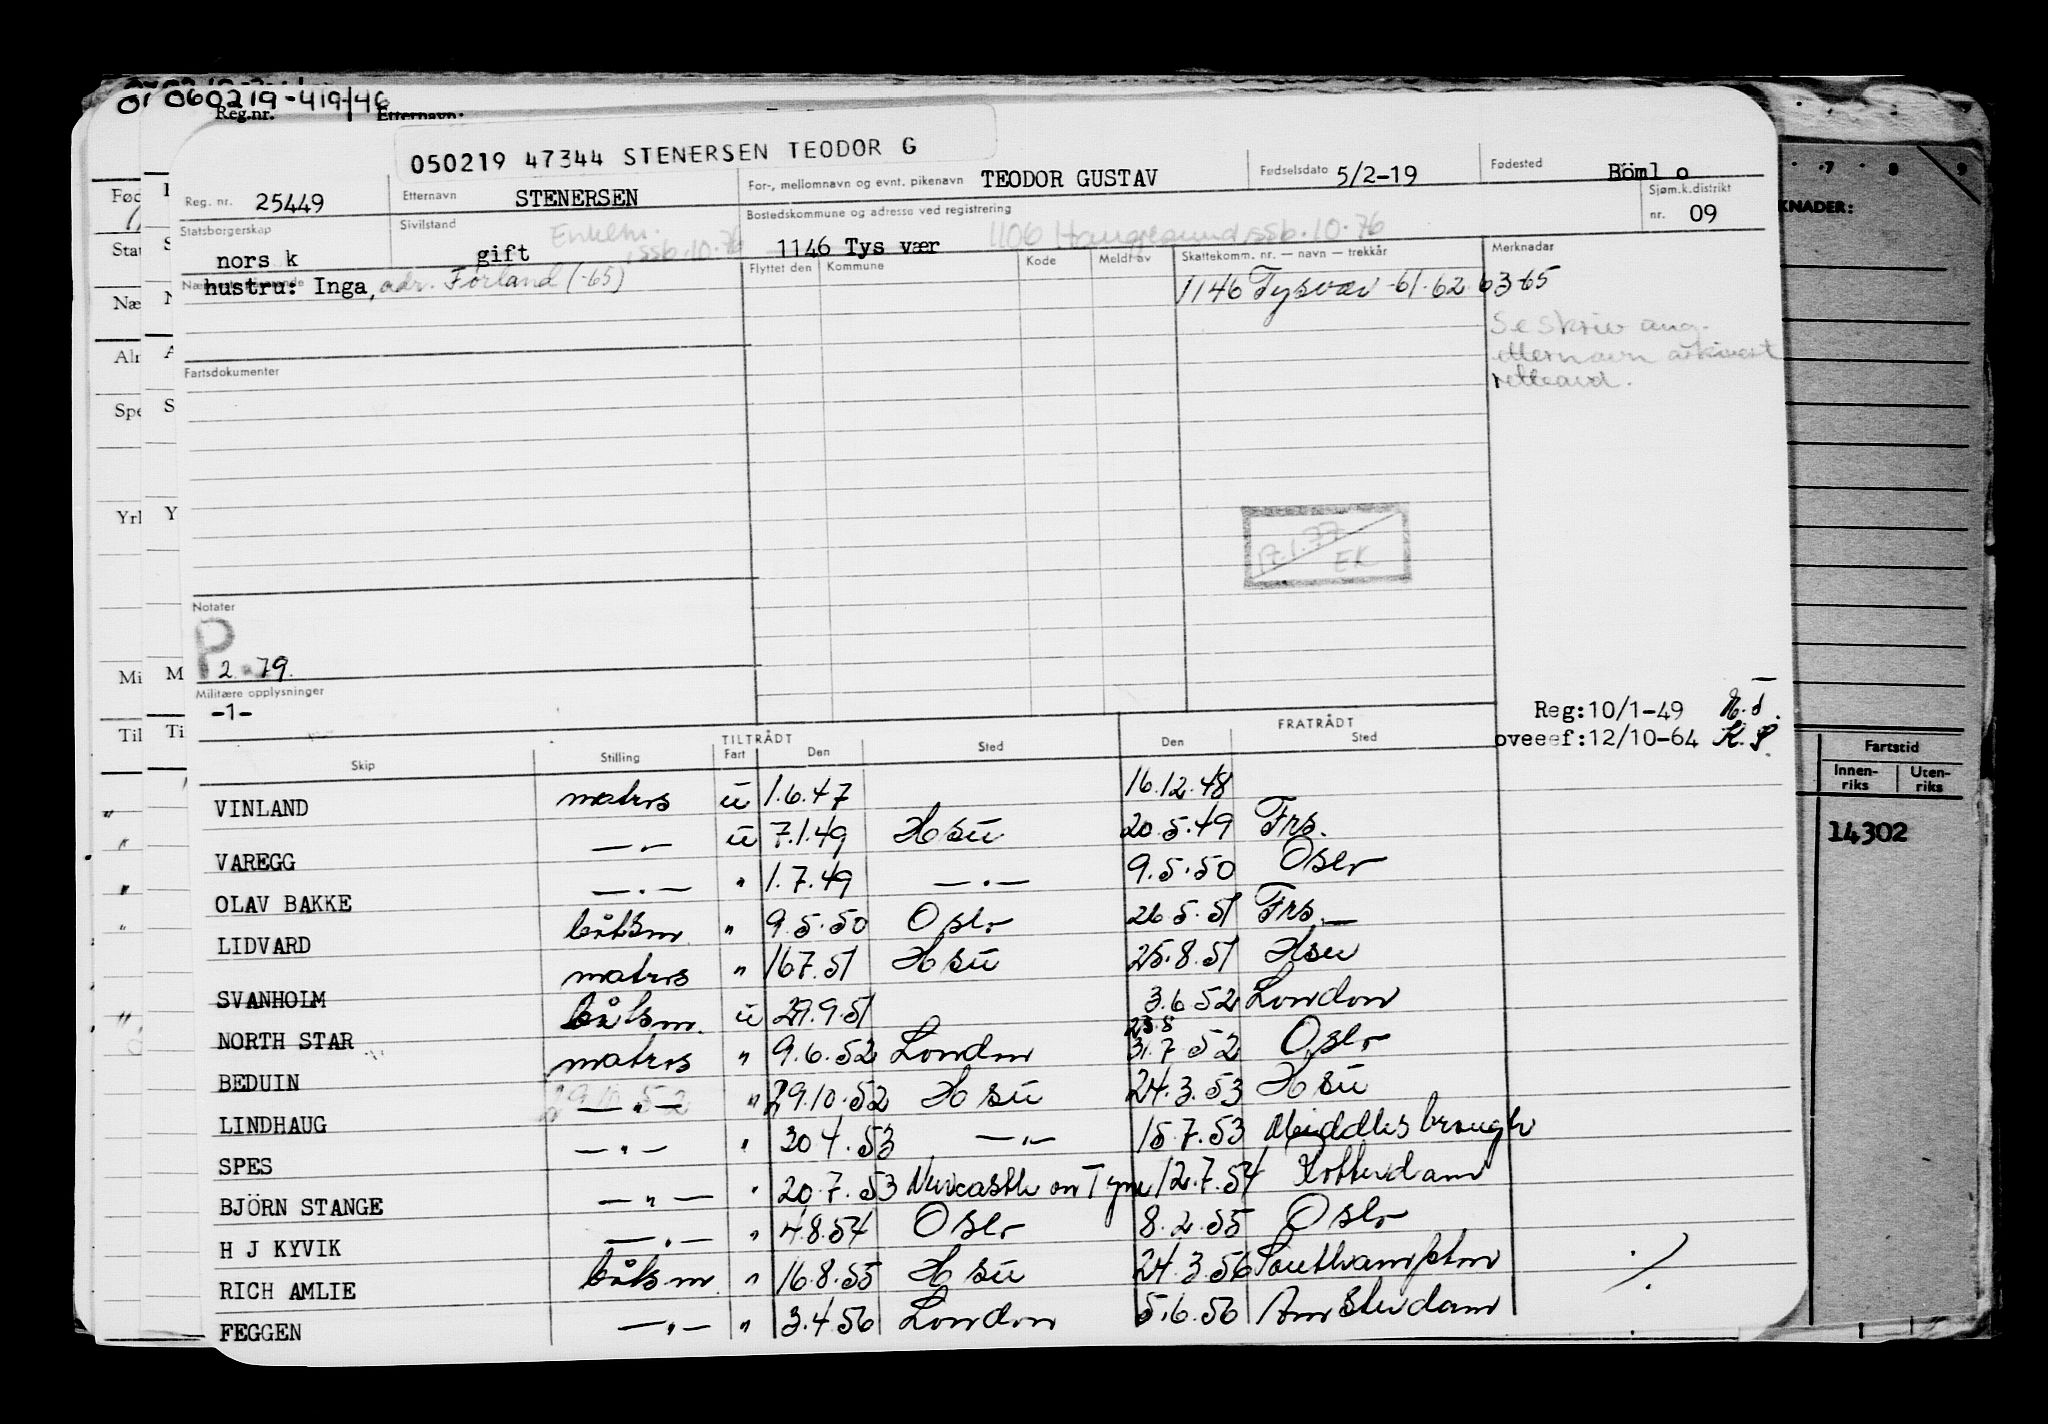 060219-419/46
Reg.nr. Etternavn:
050219 47344 STENERSEN TEODOR G
Reg. nr. 25449 Etternavn STENERSEN For-, mellomnavn og evnt. pikenavn TEODOR GUSTAV Fødselsdato 5/2-19 Fødested Böml o
Statsborgerskap nors k Sivilstand gift Enkem. ssb.10.76 Bostedskommune og adresse ved registrering 1146 Tys vær 1106 Haugesund ssb.10.76 Sjøm.k.distrikt nr. 09
Nærmeste pårørende hustru: Inga, adr. Førland (-65) Flyttet den Kommune Kode Meldt av Skattekomm. nr. — navn — trekkår Merknadar
1146 Tysvær -61-62 63-65
Se skriv ang.
etternavn arkivert
Fartsdokumenter
17.1.77
EK
Notater
P 2.79.
Militære opplysninger
-1-
Reg:10/1-49
oveeef:12/10-64 K.P.
TILTRÅDT FRATRÅDT
Skip Stilling Fart Den Sted Den Sted
VINLAND matros u 1.6.47 16.12.48
VAREGG —"— u 7.1.49 Hsu 20.5.49 Frs.
OLAV BAKKE —"— " 1.7.49 —"— 9.5.50 Oslo
LIDVARD båtsm. " 9.5.50 Oslo 26.5.51 Frs.
SVANHOIM matros " 167.51 Hsu 25.8.51 Hsu
NORTH STAR båtsm. u 29.9.51 3.6.52 London
BEDUIN matros " 9.6.52 London 23.8 31.7 52 Oslo
LINDHAUG 29.10.52 —"— " 29.10.52 Hsu 24.3.53 Hsu
SPES —"— " 30 4.53 —"— 15.7.53 Middlesbrough
BJÖRN STANGE —"— " 20.7.53 Newcastle on Tyne 12.7.54 Rotterdam
H J KYVIK —"— " 4.8.54 Oslo 8.2.55 Oslo
RICH AMLIE båtsm. " 16.8.55 Hsu 24.3.56 Southampton
FEGGEN —"— " 3.4.56 London 5.6.56 Amsterdam
./.
KNADER:
Fartstid
Innen-riks Uten-riks
14302